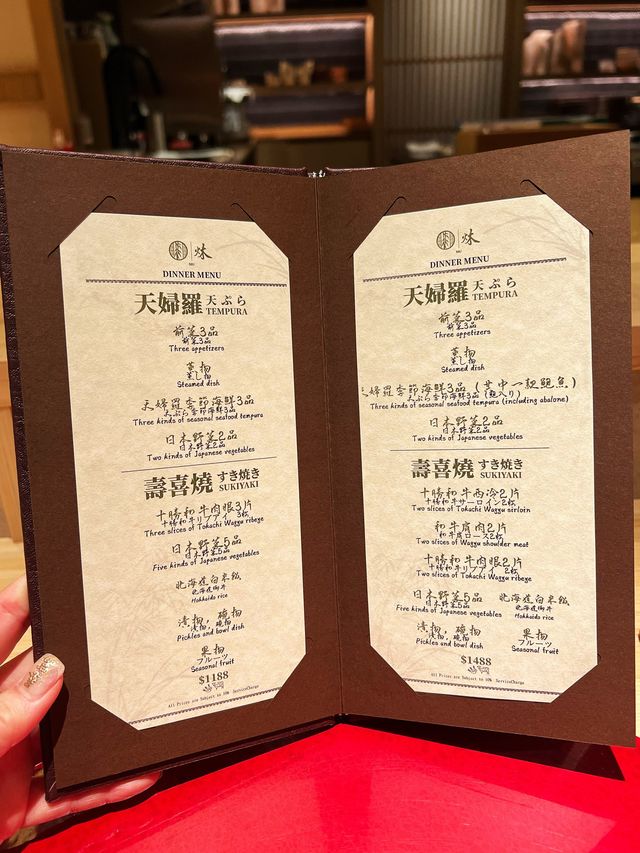 DINNER MENU
天婦羅 天ぷら
TEMPURA
前菜3品
前菜3品
Three appetizers
蒸物
蒸し物
Steamed dish
天婦羅季節海鮮3品
天ぷら季節海鮮3品
Three kinds of seasonal seafood tempura
日本野菜2品
日本野菜2品
Two kinds of Japanese vegetables
壽喜燒 すき焼き
SUKIYAKI
十勝和牛肉眼3片
十勝和牛リブアイ 3枚
Three slices of Tokachi Wagyu ribeye
日本野菜5品
日本野菜5品
Five kinds of Japanese vegetables
北海道白米飯
Hokkaido rice
漬物, 碗物
漬物, 碗物
Pickles and bowl dish
果物
フルーツ
Seasonal fruit
$1188
All Prices are Subject to 10% ServiceCharge
DINNER MENU
天婦羅 天ぷら
TEMPURA
前菜3品
前菜3品
Three appetizers
蒸物
蒸し物
Steamed dish
天婦羅季節海鮮3品 (其中一親鮑魚)
天ぷら季節海鮮3品 (鮑入り)
Three kinds of seasonal seafood tempura (including abalone)
日本野菜2品
日本野菜2品
Two kinds of Japanese vegetables
壽喜燒 すき焼き
SUKIYAKI
十勝和牛西冷2片
十勝和牛サーロイン2枚
Two slices of Tokachi Wagyu sirloin
和牛肩肉2片
和牛肩ロース2枚
Two slices of Wagyu shoulder meat
十勝和牛肉眼2片
十勝和牛リブアイ 2枚
Two slices of Tokachi Wagyu ribeye
日本野菜5品
日本野菜5品
Five kinds of Japanese vegetables
北海道白米飯
Hokkaido rice
漬物, 碗物
漬物, 碗物
Pickles and bowl dish
果物
フルーツ
Seasonal fruit
$1488
All Prices are Subject to 10% ServiceCharge